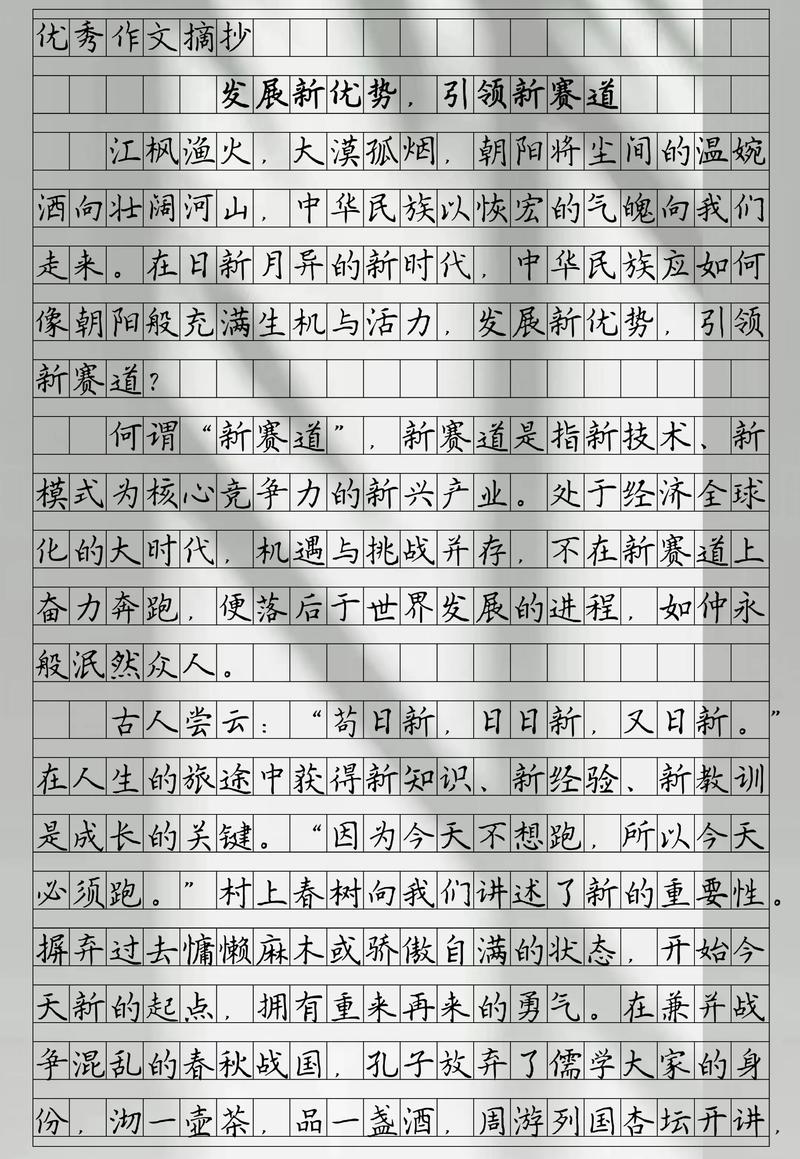 优秀作文摘抄
发展新优势，引领新赛道
江枫渔火，大漠孤烟，朝阳将尘间的温婉
洒向壮阔河山，中华民族以恢宏的气魄向我们
走来。在日新月异的新时代，中华民族应如何
像朝阳般充满生机与活力，发展新优势，引领
新赛道？
何谓“新赛道”，新赛道是指新技术、新
模式为核心竞争力的新兴产业。处于经济全球
化的大时代，机遇与挑战并存，不在新赛道上
奋力奔跑，便落后于世界发展的进程，如仲永
般泯然众人。
古人尝云：“苟日新，日日新，又日新。”
在人生的旅途中获得新知识、新经验、新教训
是成长的关键。“因为今天不想跑，所以今天
必须跑。”村上春树向我们讲述了新的重要性。
摒弃过去慵懒麻木或骄傲自满的状态，开始今
天新的起点，拥有重来再来的勇气。在兼并战
争混乱的春秋战国，孔子放弃了儒学大家的身
份，沏一壶茶，品一盏酒，周游列国杏坛开讲，